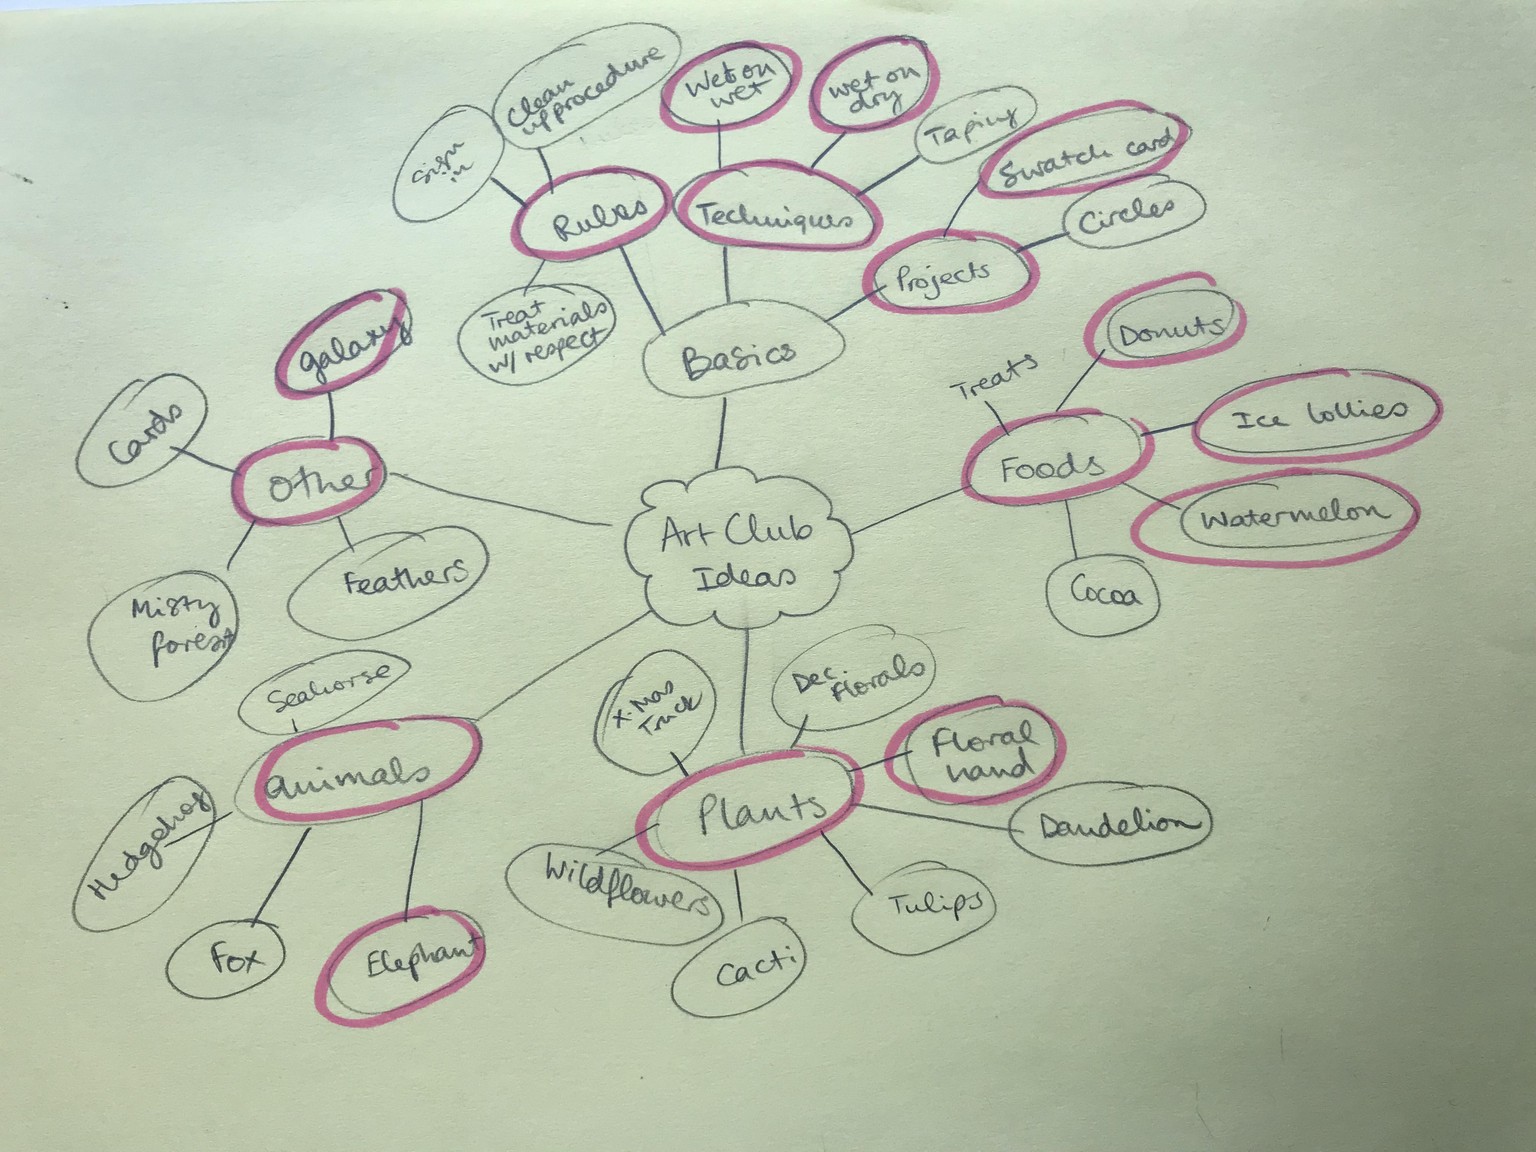 Clean
up procedure
Sign
in
Wet on
wet
wet on
dry
Taping
Swatch card
Circles
Rules
Techniques
Projects
Treat
materials
w/ respect
Basics
galaxy
Cards
Other
Misty
forest
Feathers
Donuts
Treats
Ice lollies
Foods
Watermelon
Cocoa
Art Club
Ideas
Seahorse
Animals
Hedgehog
Fox
Elephant
X-Mas
Truck
Dec.
Florals
Floral
hand
Plants
Dandelion
Wildflowers
Tulips
Cacti